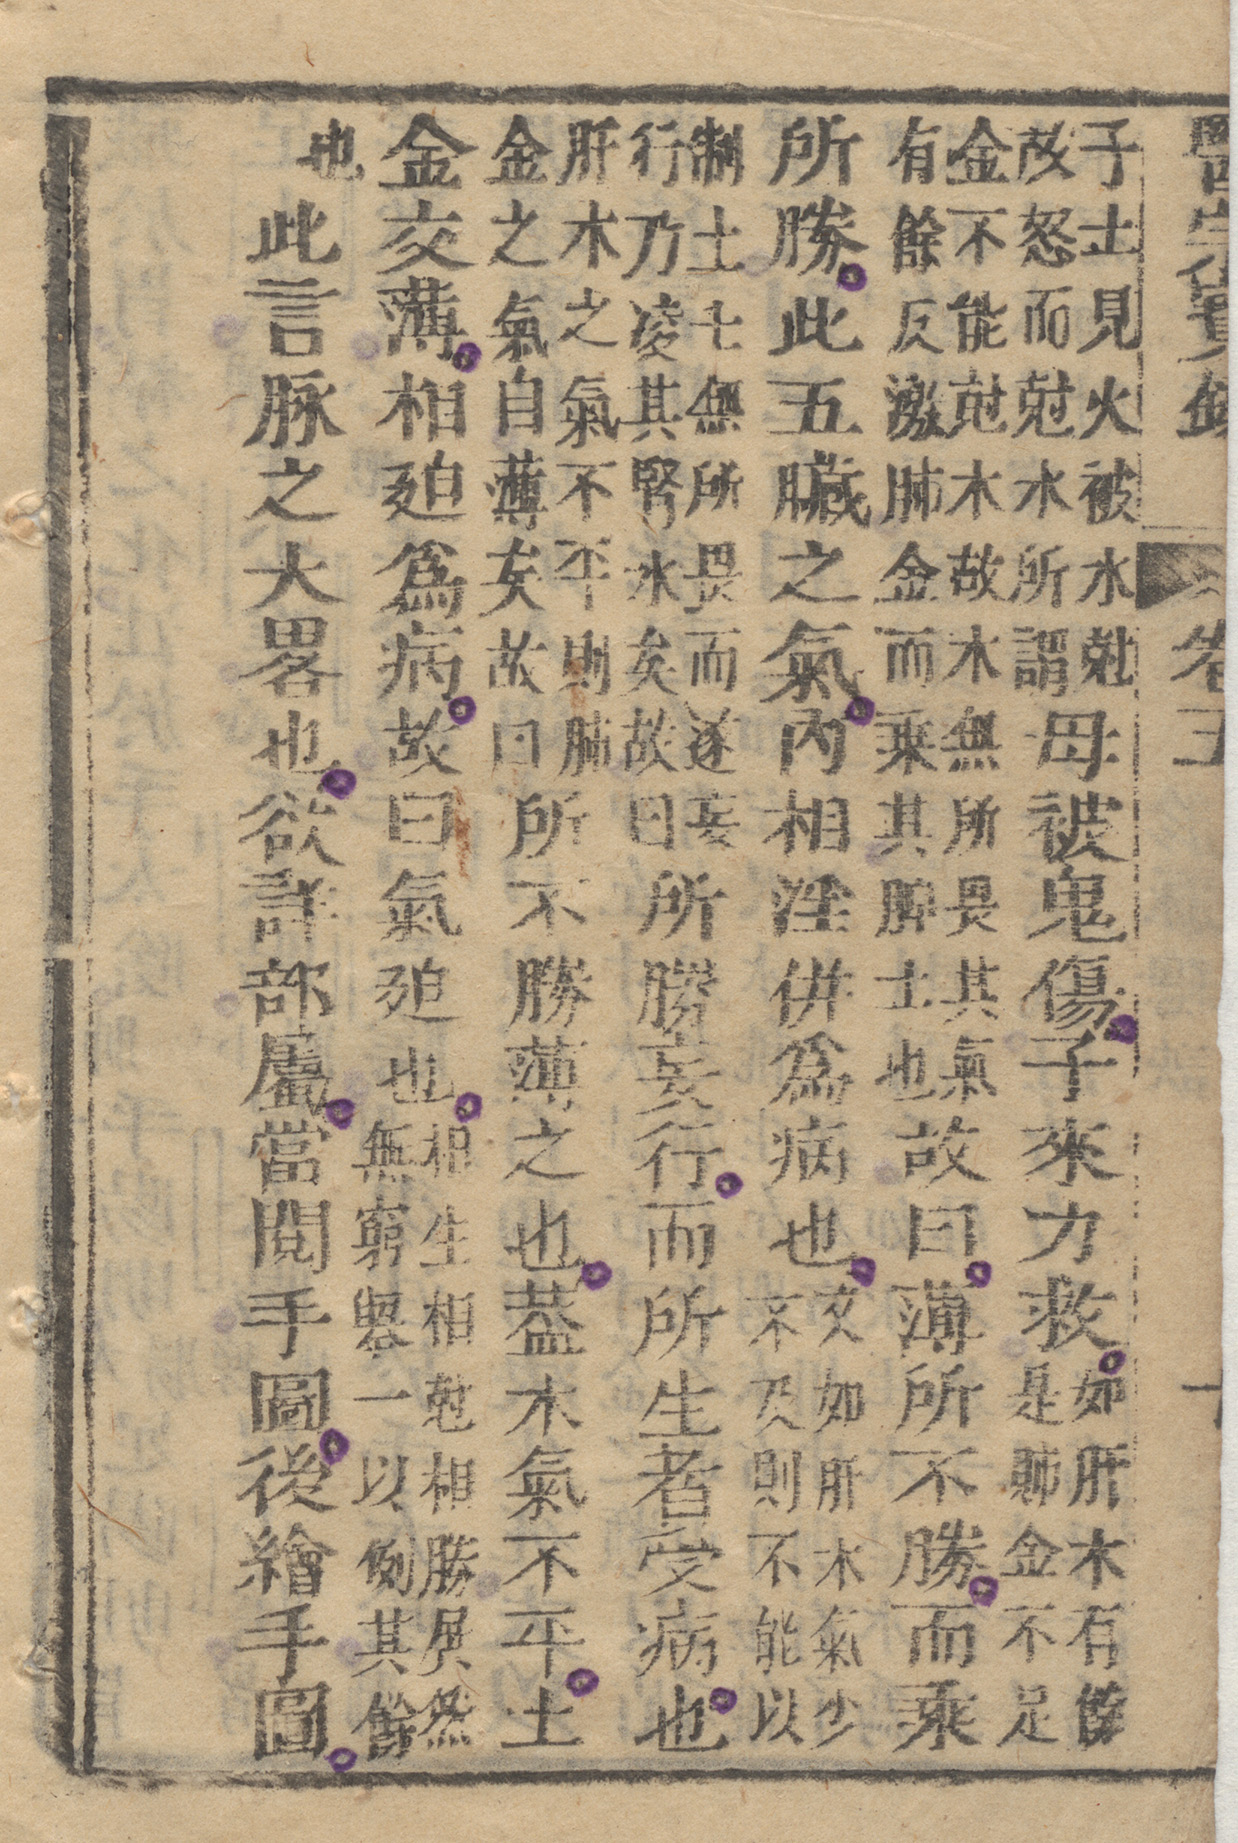 子土見火被水尅故怒而尅水所謂母被鬼傷子來力救如肝木有餘是肺金不足
金不能尅木故木無所畏其氣有餘反激肺金而乘其脾土也故曰薄所不勝而乘
所勝此五臟之氣內相淫併爲病也又如肝木氣少不及則不能以
制土土無所畏而遂妄行乃凌其腎水矣故曰所勝妄行而所生者受病也
肝木之氣不平則肺金之氣自薄矣故曰所不勝薄之也葢木氣不平土
金交薄相廹爲病故曰氣廹也相生相尅相勝展然無窮畧一以例其餘
也此言脉之大畧也欲詳部屬當閱手圖後繪手圖